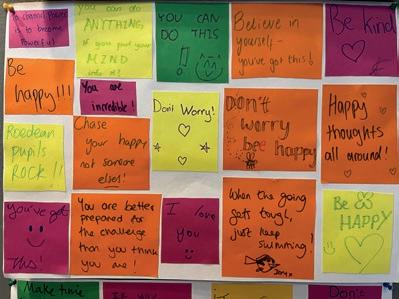 To channel Power
is to become
Powerful
you can do
ANYTHING
if you put your
MIND
into it!
YOU CAN
DO THIS
!
Believe in
yourself -
you've got this!
Be kind
Be
happy!!!
You are
incredible!
Don't Worry!
Don't
worry
bee happy
Happy
thoughts
all around!
Roedean
Pupils
ROCK!!
Chase
your happy
not someone
elses!
You've got
this!
You are better
prepared for
the challenge
than you think
you are!
I love
you
When the going
gets tough,
just keep
swimming!
Be
HAPPY
Make time
Don't